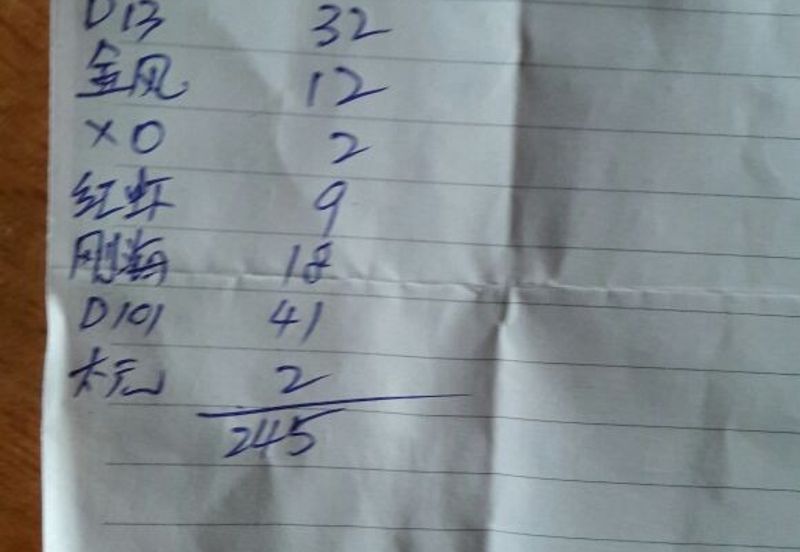 D13 32
金风 12
XO 2
红虾 9
刚海 18
D101 41
木元 2
245